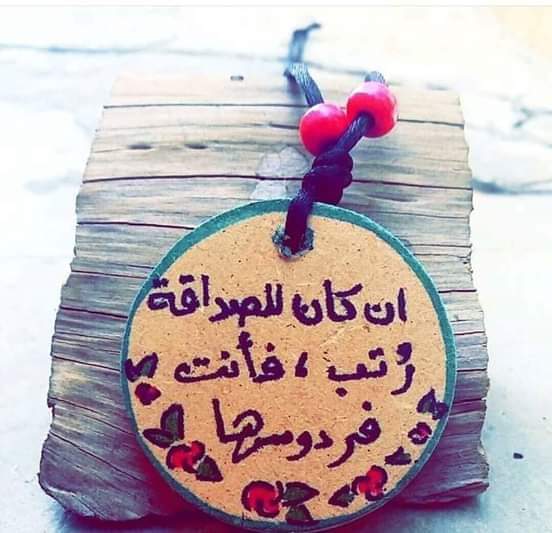 ان كان للصداقة
رُتب ، فأنت
فردوسها